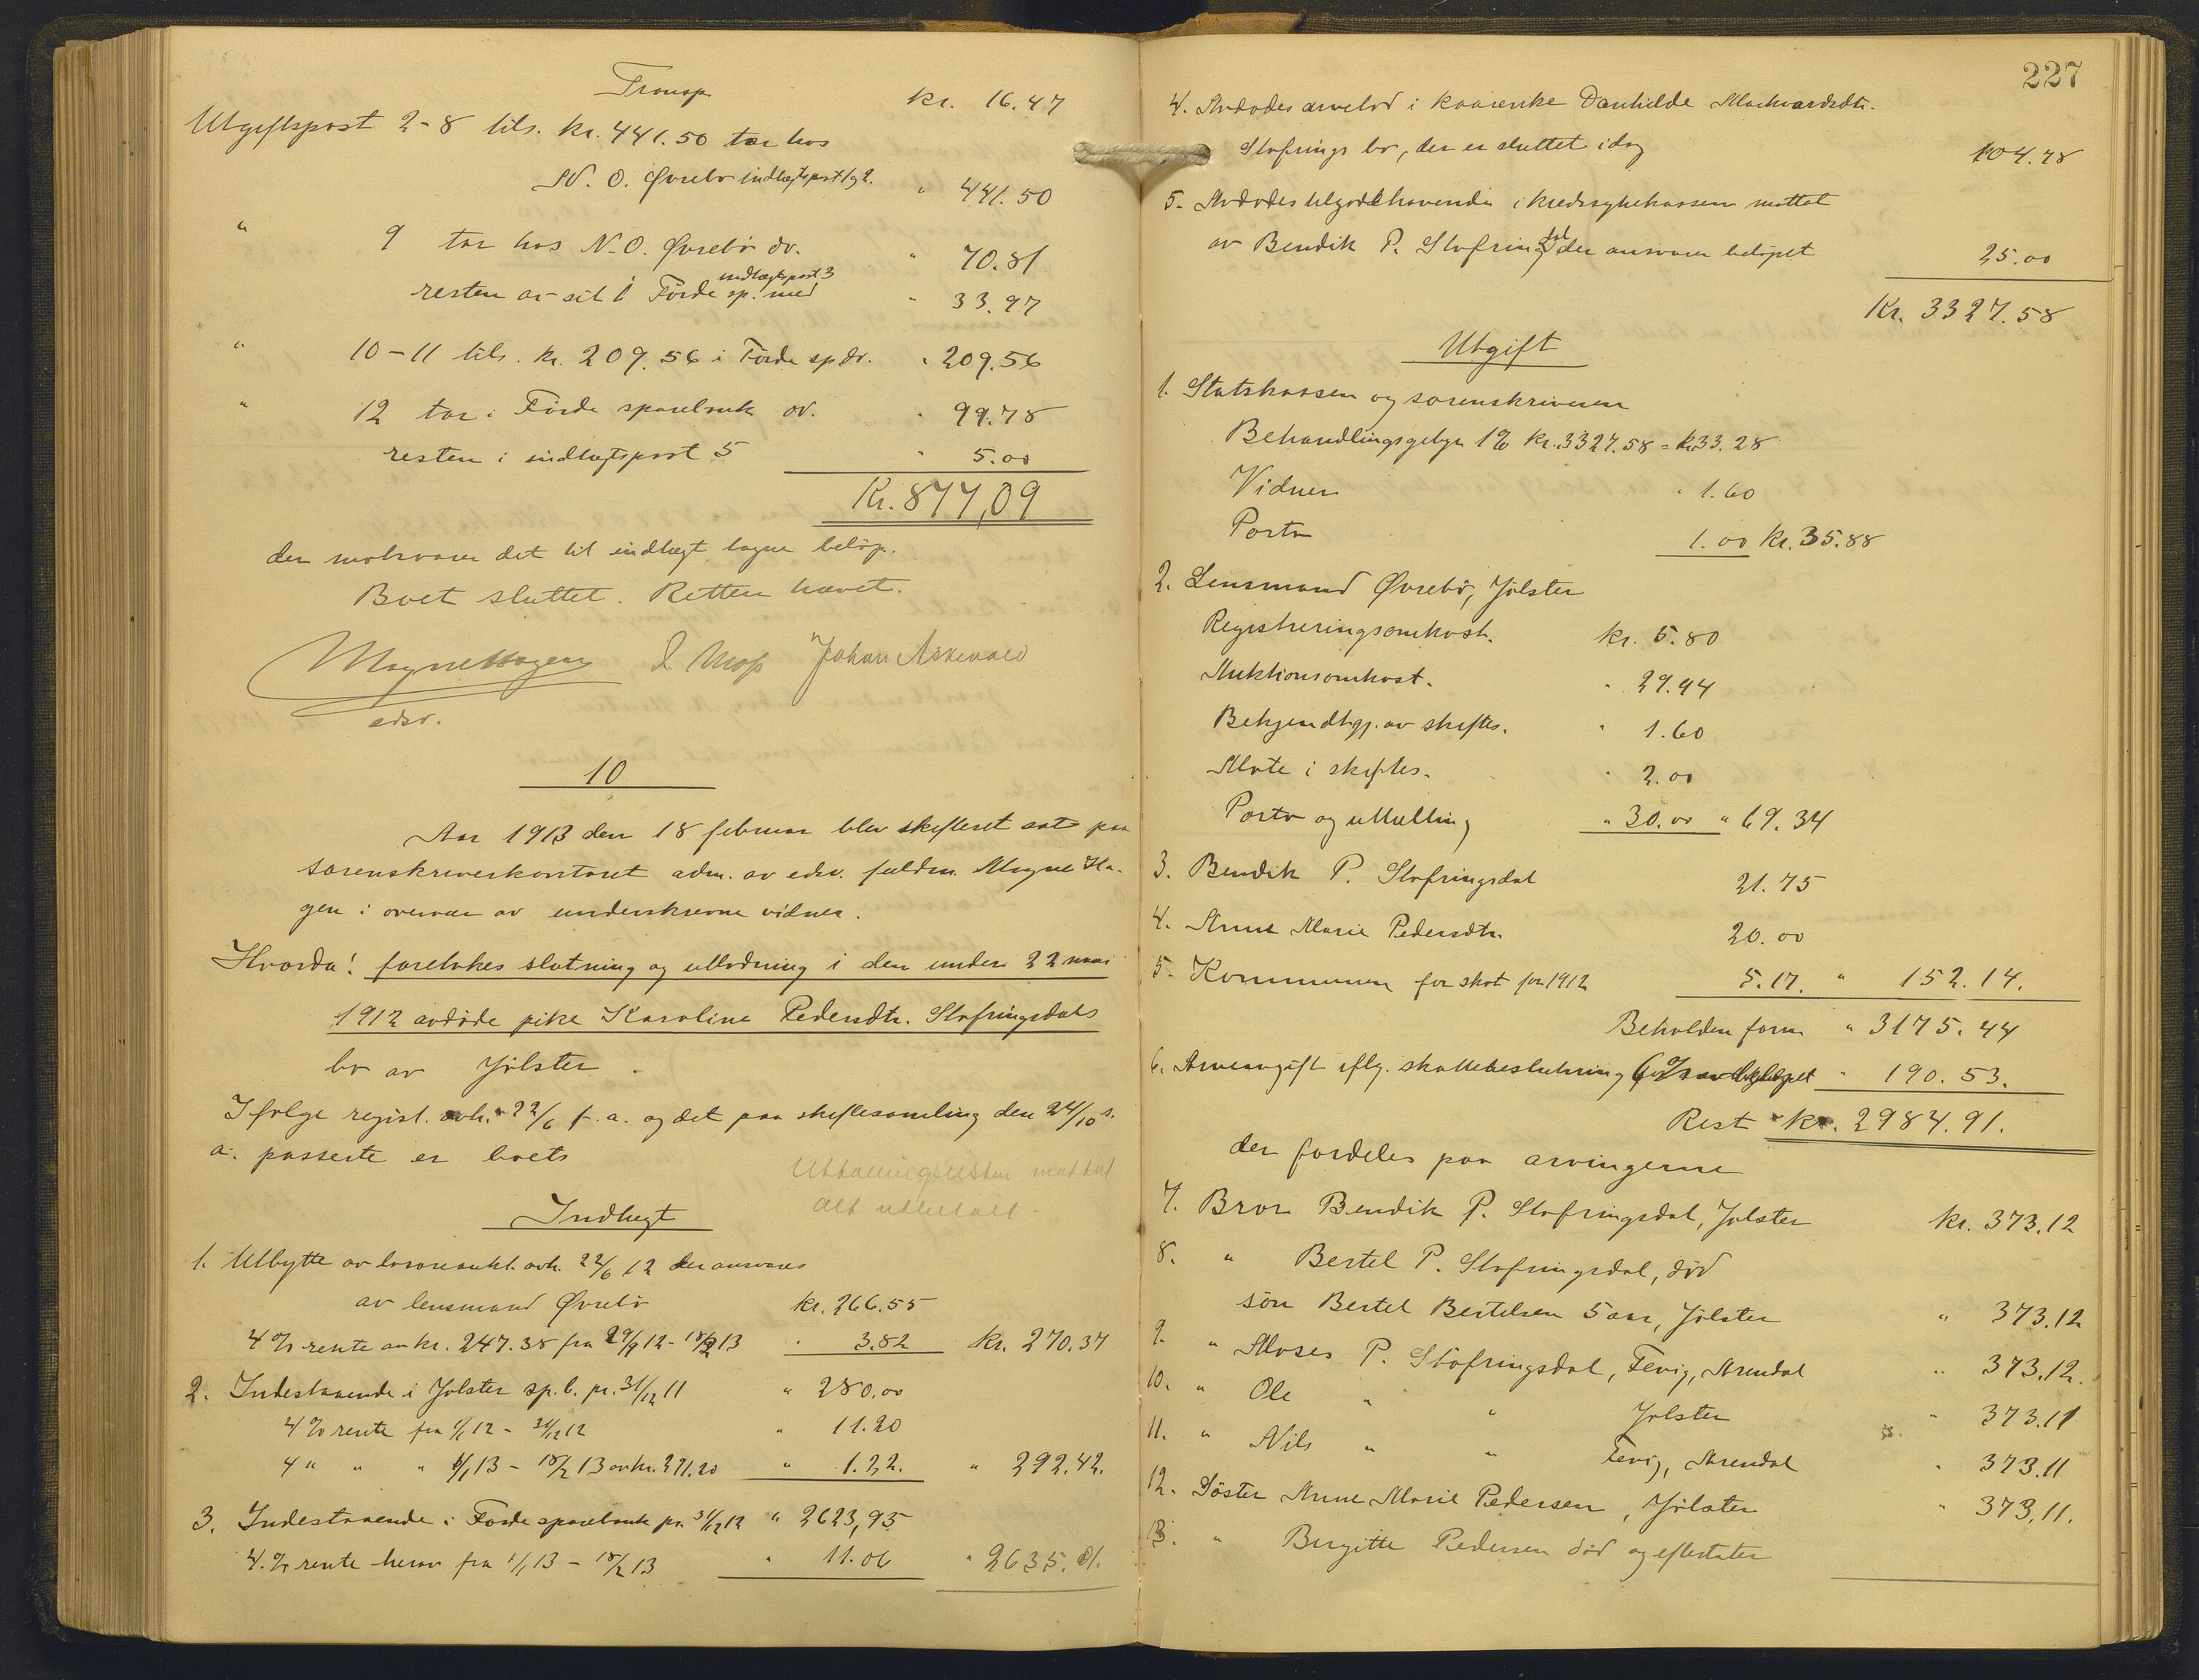 Transp. kr. 16.47
Utgiftspost 2-8 tils. kr. 441.50 tar hos
N. O. Øvrebø indtægtspost 1 og 2. " 441.50
" 9 tar hos N. O. Øvrebø dv. " 70.81
resten av sit i Førde sp. med indtægtspost 3 " 33.97
" 10-11 tils. kr. 209.56 i Førde sp dv. " 209.56
" 12 tar i Førde sparebank dv. " 99.78
resten i indtægtspost 5 " 5.00
Kr. 877,09
der motsvarer det til indtægt tagne beløp.
Boet sluttet. Retten hævet.
Magne Hagen J. Moss Johan Askevold
edsv.
10
Aar 1913 den 18 februar blev skifteret sat paa
sorenskriverkontoret adm. av edsv. fuldm. Magne Ha-
gen i overvær av underskrevne vidner.
Hvorda! foretokes slutning og utlodning i den under 22 mai
1912 avdøde pike Karoline Pedersdtr. Støfringsdals
bo av Jølster.
Ifølge regist. avh. 22/6 f. a. og det paa skiftesamling den 24/10 s.
a. passerte er boets
Utbetalingslisten mottat
Alt utbetalt.
Indtægt
1. Utbytte av løsøreaukt. avh. 22/6 12 der ansvares
av lensmand Øvrebø kr. 266.55
4 % rente av kr. 247.38 fra 29/9 12 - 18/2 13 " 3.82 kr. 270.37
2. Indestaaende i Jølster sp.b. pr. 31/12 11 " 280.00
4 % rente fra 1/1 12 - 31/12 12 " 11.20
4 " " " 1/1 13 - 18/2 13 av kr. 291.20 " 1.22. " 292.42.
3. Indestaaende i Førde sparebank pr. 31/12 12 " 2623,95
4. % rente herav fra 1/1 13 - 18/2 13 " 11.06 " 2635.01.
227
4. Avdødes arvelod i kaarenke Danhilde Markvardsdtr.
Støfrings bo, der er sluttet idag 104.78
5. Avdødes tilgodehavende i kredssykekassen mottat
av Bendik P. Støfringsdal der ansvarer beløpet 25.00
Kr. 3327.58
Utgift
1. Statskassen og sorenskriveren
Behandlingsgebyr 1% kr. 3327.58 = kr. 33.28
Vidner " 1.60
Porto 1.00 kr. 35.88
2. Lensmand Øvrebø, Jølster
Registreringsomkost. kr. 5.80
Auktionsomkost. " 29.94
Bekjendtgj. av skiftes. " 1.60
Møte i skiftes. " 2.00
Porto og uttælling " 30.00 " 69.34
3. Bendik P. Støfringsdal 21.75
4. Anne Marie Pedersdtr. 20.00
5. Kommunen for skat for 1912 5.17. " 152.14.
Beholden form " 3175.44
6. Arveavgift iflg. skattebeslutning 6% av beløpet " 190.53.
Rest kr. 2984.91.
der fordeles paa arvingerne
7. Bror Bendik P. Støfringsdal, Jølster kr. 373.12
8. " Bertel P. Støfringsdal, død
søn Bertel Bertelsen 5 aar, Jølster " 373.12
9. " Moses P. Støfringsdal, Fevig, Arendal " 373.12.
10. " Ole " " Jølster " 373.11
11. " Nils " " Fevig, Arendal " 373.11
12. Søster Anne Marie Pedersen, Jølster " 373.11.
13. " Birgitte Pedersen død og efterlater